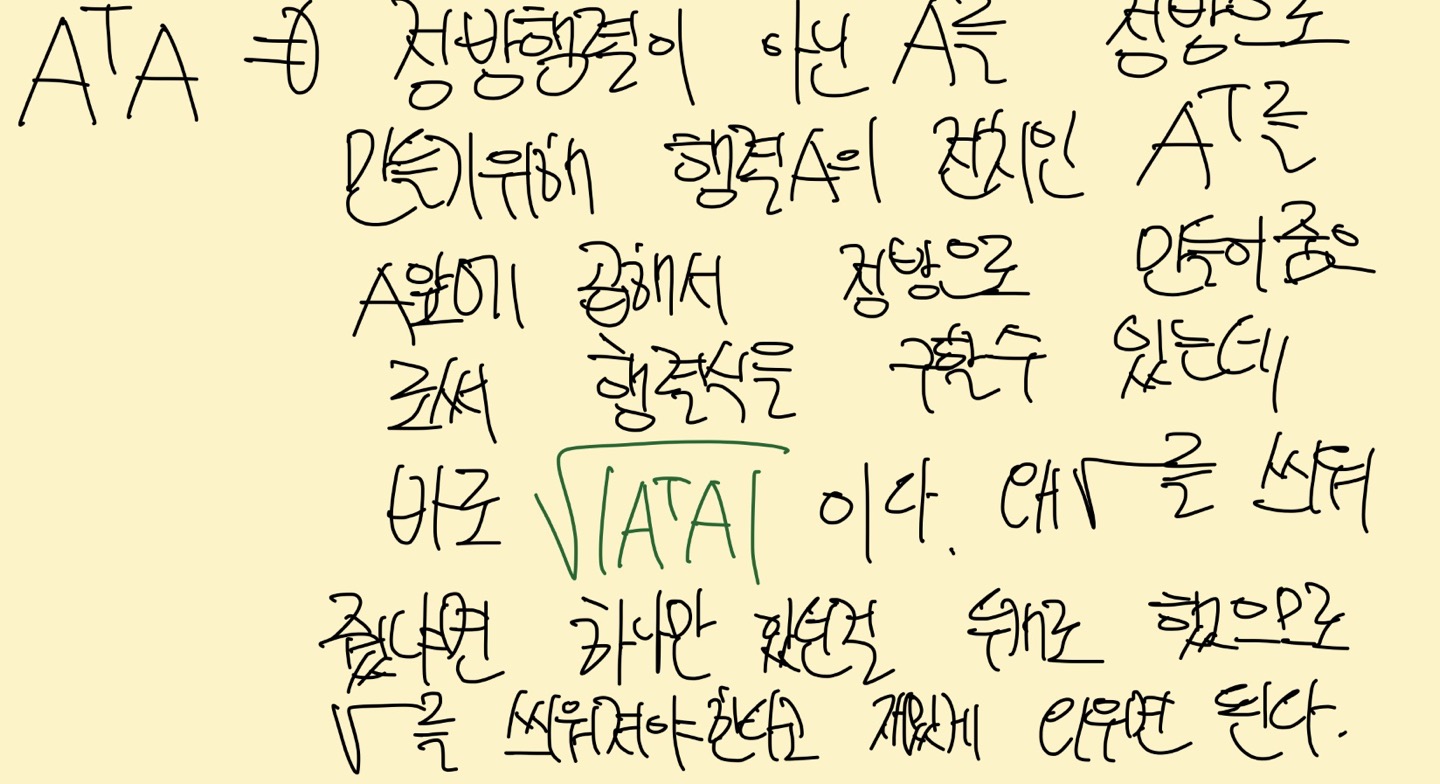 AᵀA ⇒ 정방행렬이 아닌 A를 정방으로
만들기위해 행렬A의 전치인 Aᵀ를
A앞에 곱해서 정방으로 만들어줌으
로써 행렬식을 구할수 있는데
바로 √|AᵀA| 이다. 왜 √를 씌워
줬냐면 하나만 했던걸 두개로 했으므로
√를 씌워져야한다고 재밌게 외우면 된다.